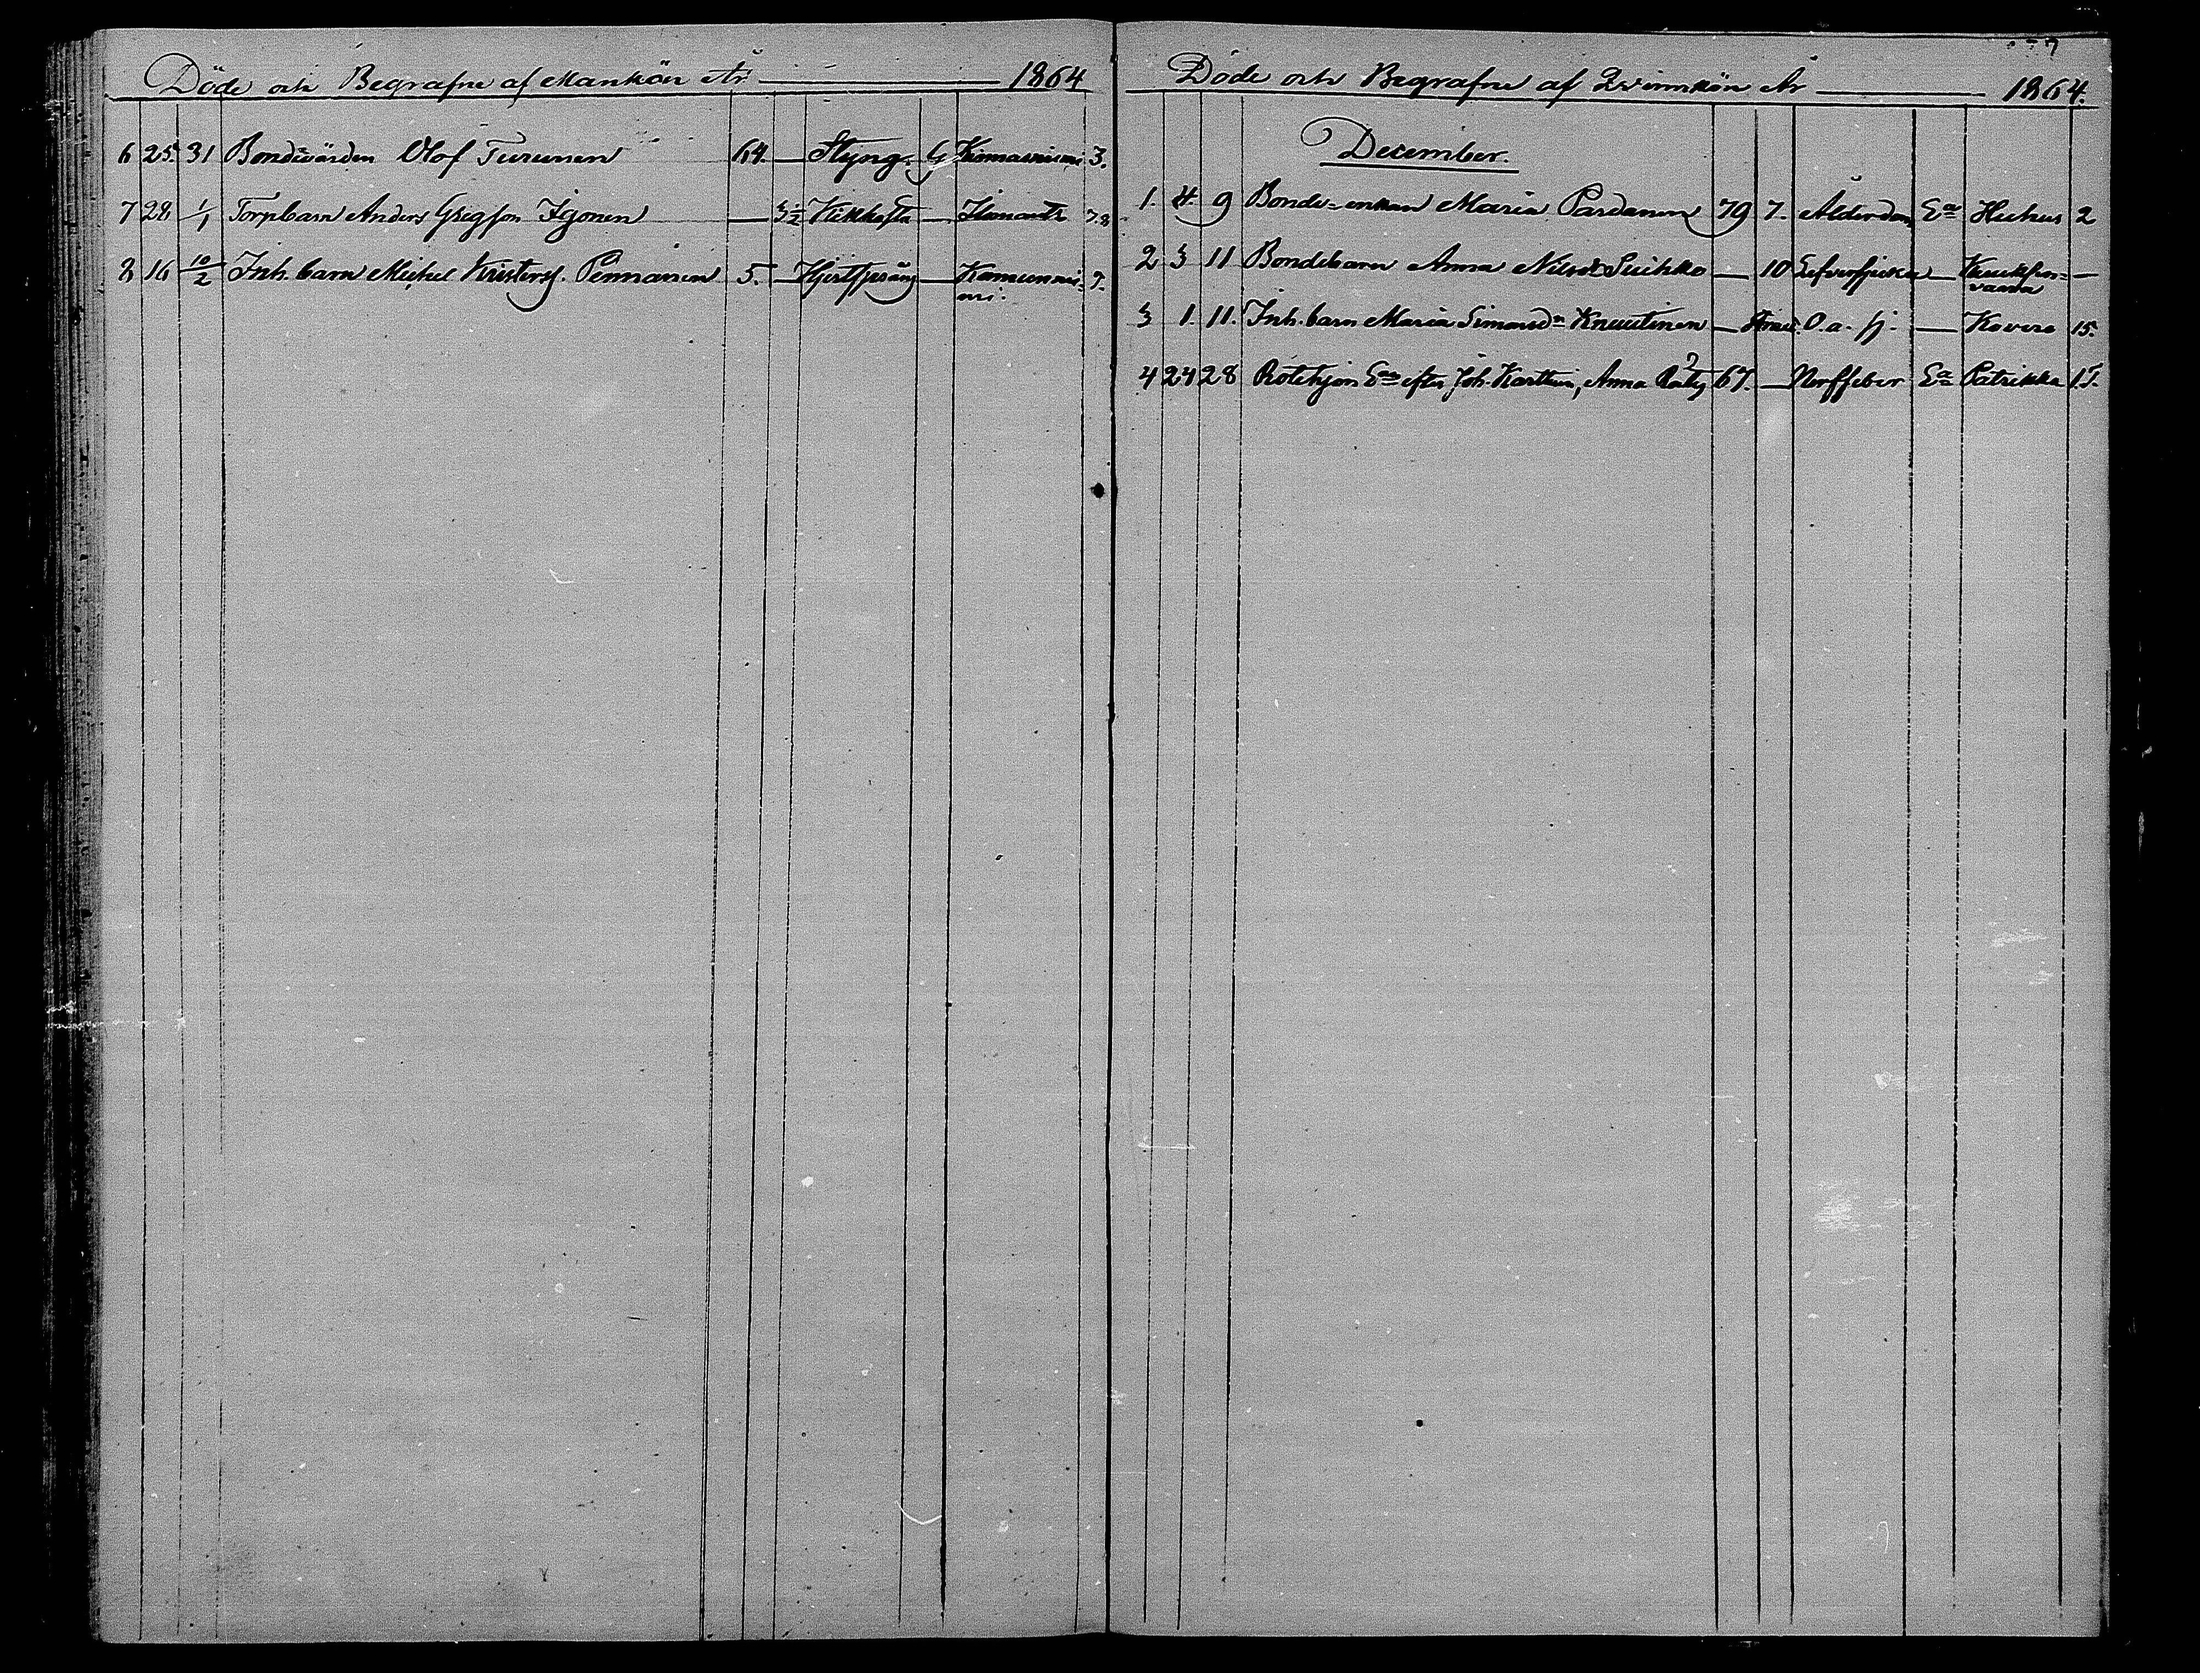 Döde och Begrafne af Mankön År 1864
6 25. 31 Bondevärden Olof Turunen 64. — Styng. G Kinnasniemi 3.
7 28 1/1 Torpbarn Anders Gregsson Igonen — 3 1/2 Kikhosta — Ilomants 78
8 16 10/2 Inh. barn Michel Kristerss. Pennanen 5. — Hjertsprång — Kamunnie-
mi.
Döde och Begrafne af Qvinnkön År 1864.
December.
1. 4 9 Bonde-enkan Maria Pardanen 79 7. Ålderdom Ea Huhus 2
2 3 11 Bondebarn Anna Nilsdr Suihko — 10 Lefversjuka —
vaara —
3 1. 11. Inh. barn Maria Simonsdr Knuutinen — O. a. sj. — Kovero 15.
4 24 28 Rotehjon Ean efter Joh. Karttuin, Anna Räty ? 67. — Nerffeber Ea Patrikka 15.